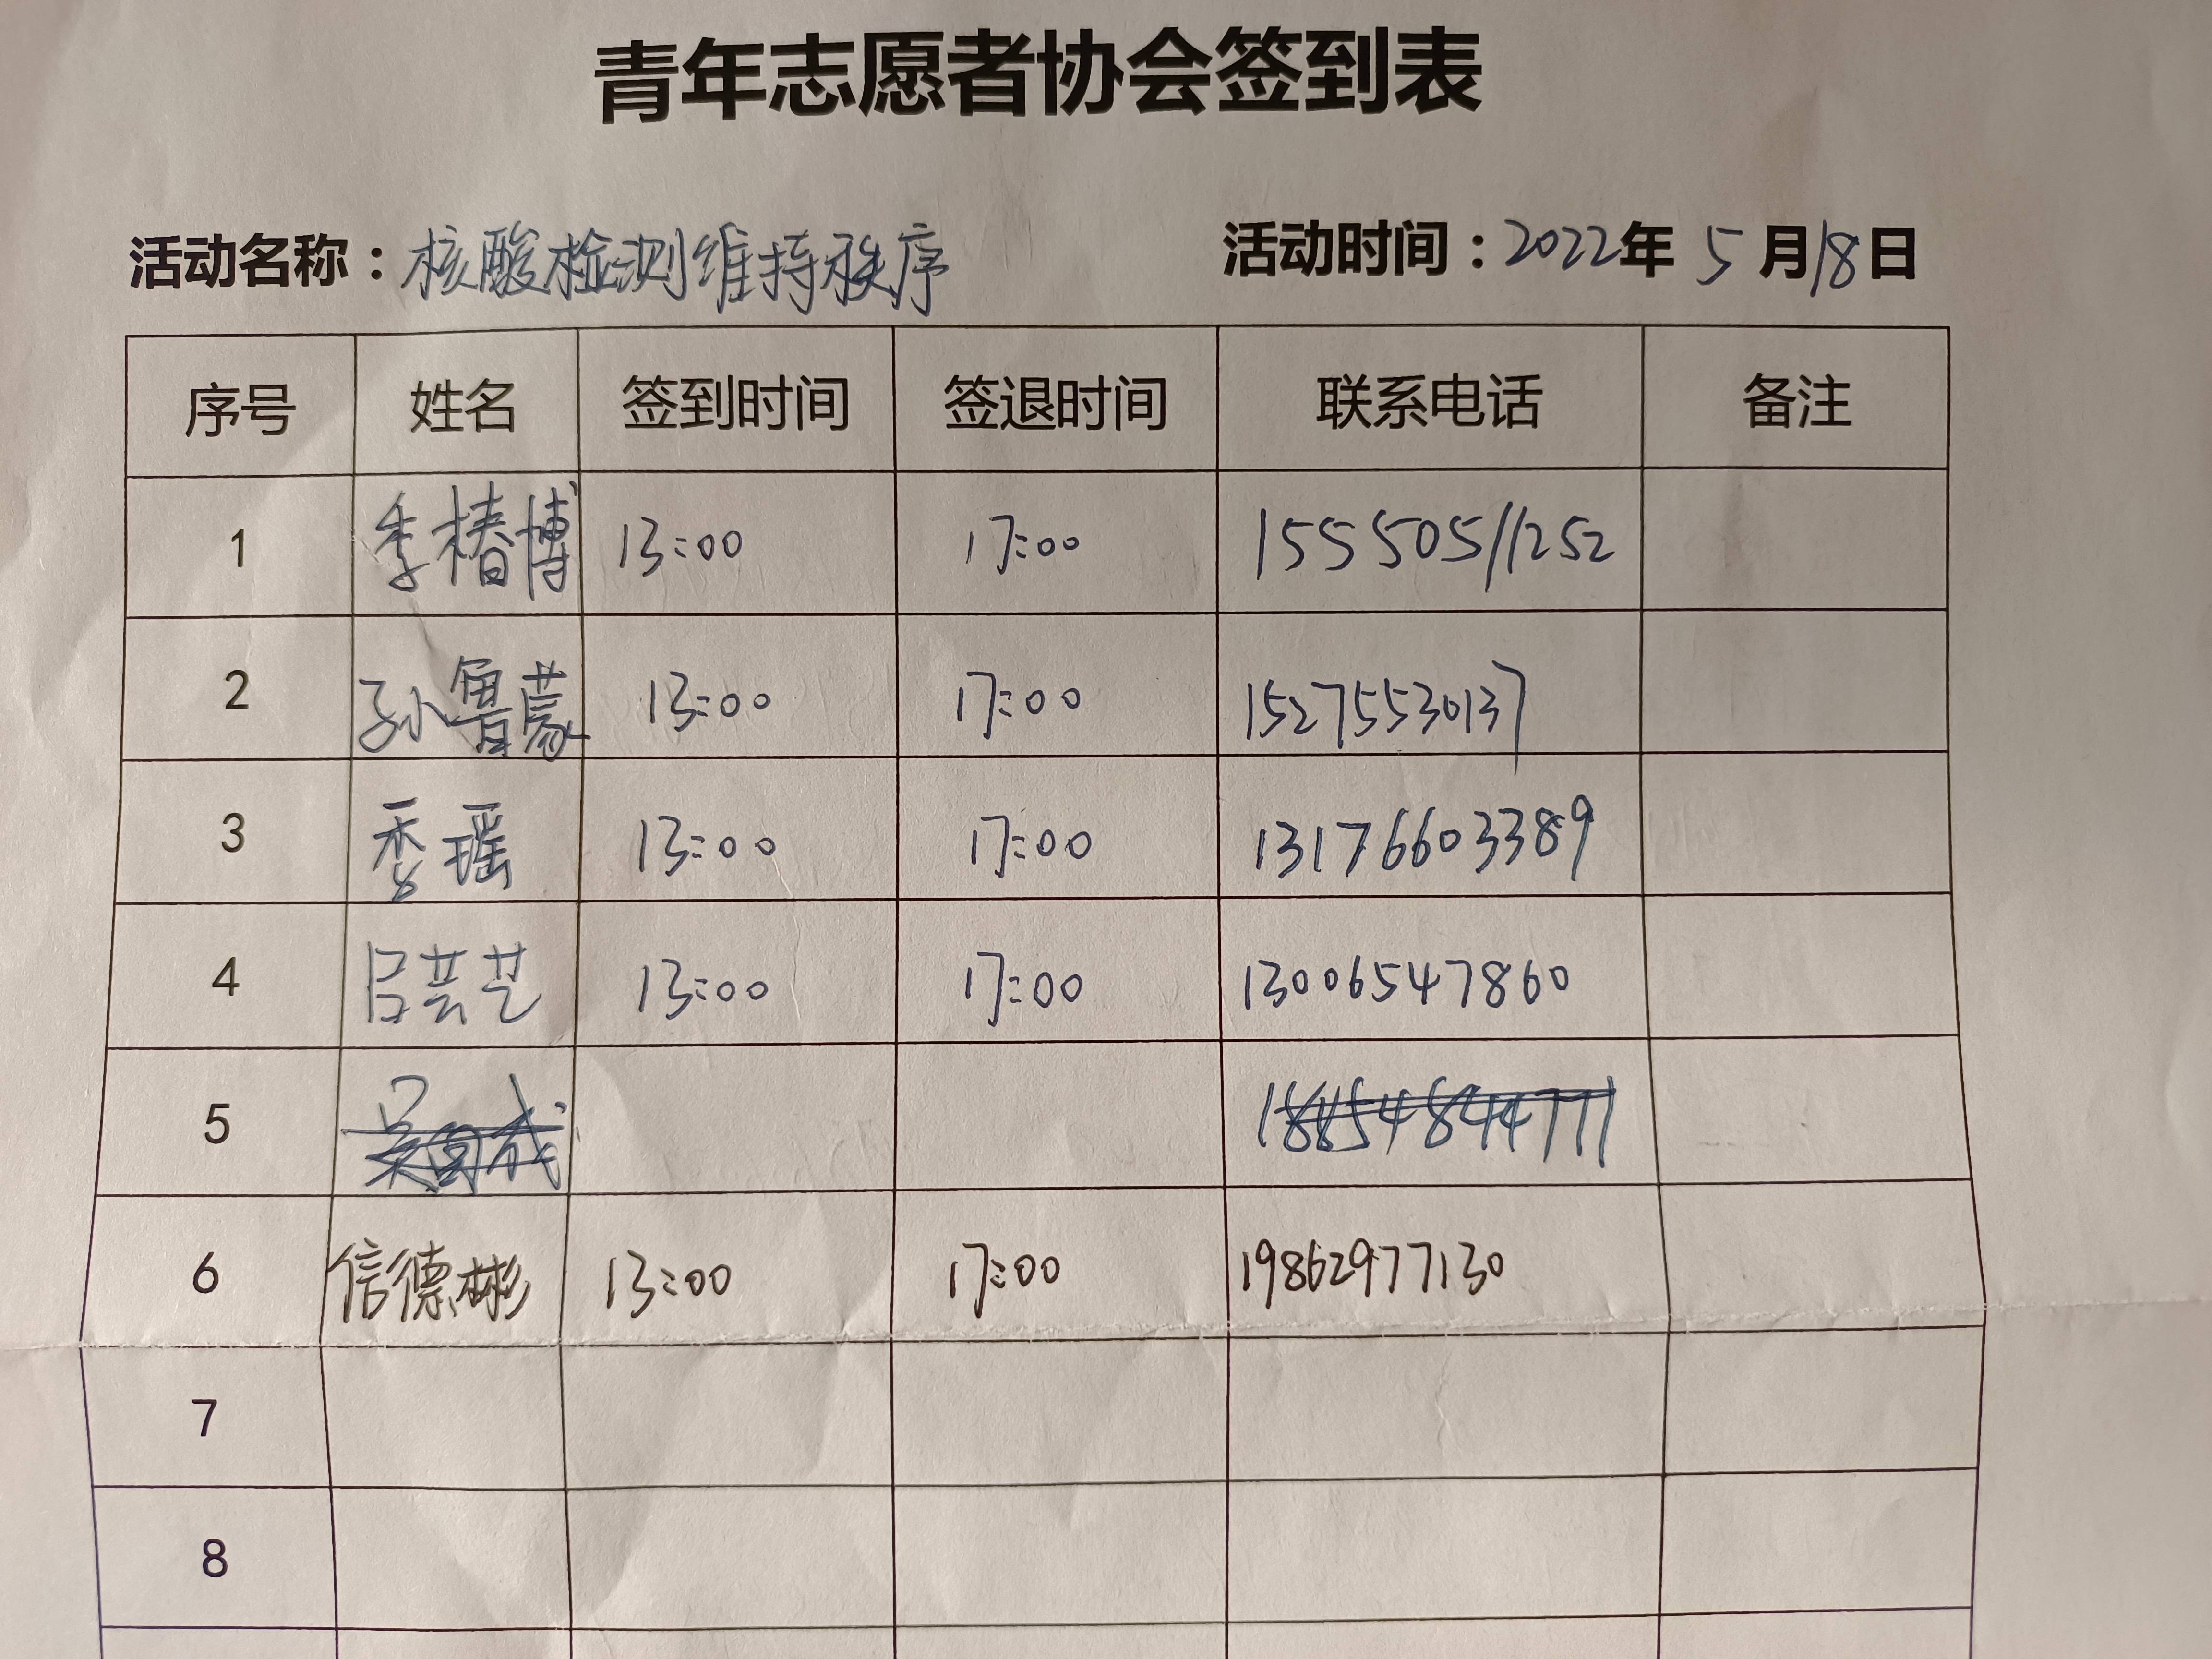 青年志愿者协会签到表
活动名称：核酸检测维持秩序 活动时间：2022年 5 月18日
序号 姓名 签到时间 签退时间 联系电话 备注
1 季椿博 13:00 17:00 15550511252
2 孙鲁蒙 13:00 17:00 15275530137
3 季瑶 13:00 17:00 13176603389
4 吕芸艺 13:00 17:00 13006547860
5
6 信德彬 13:00 17:00 19862977130
7
8